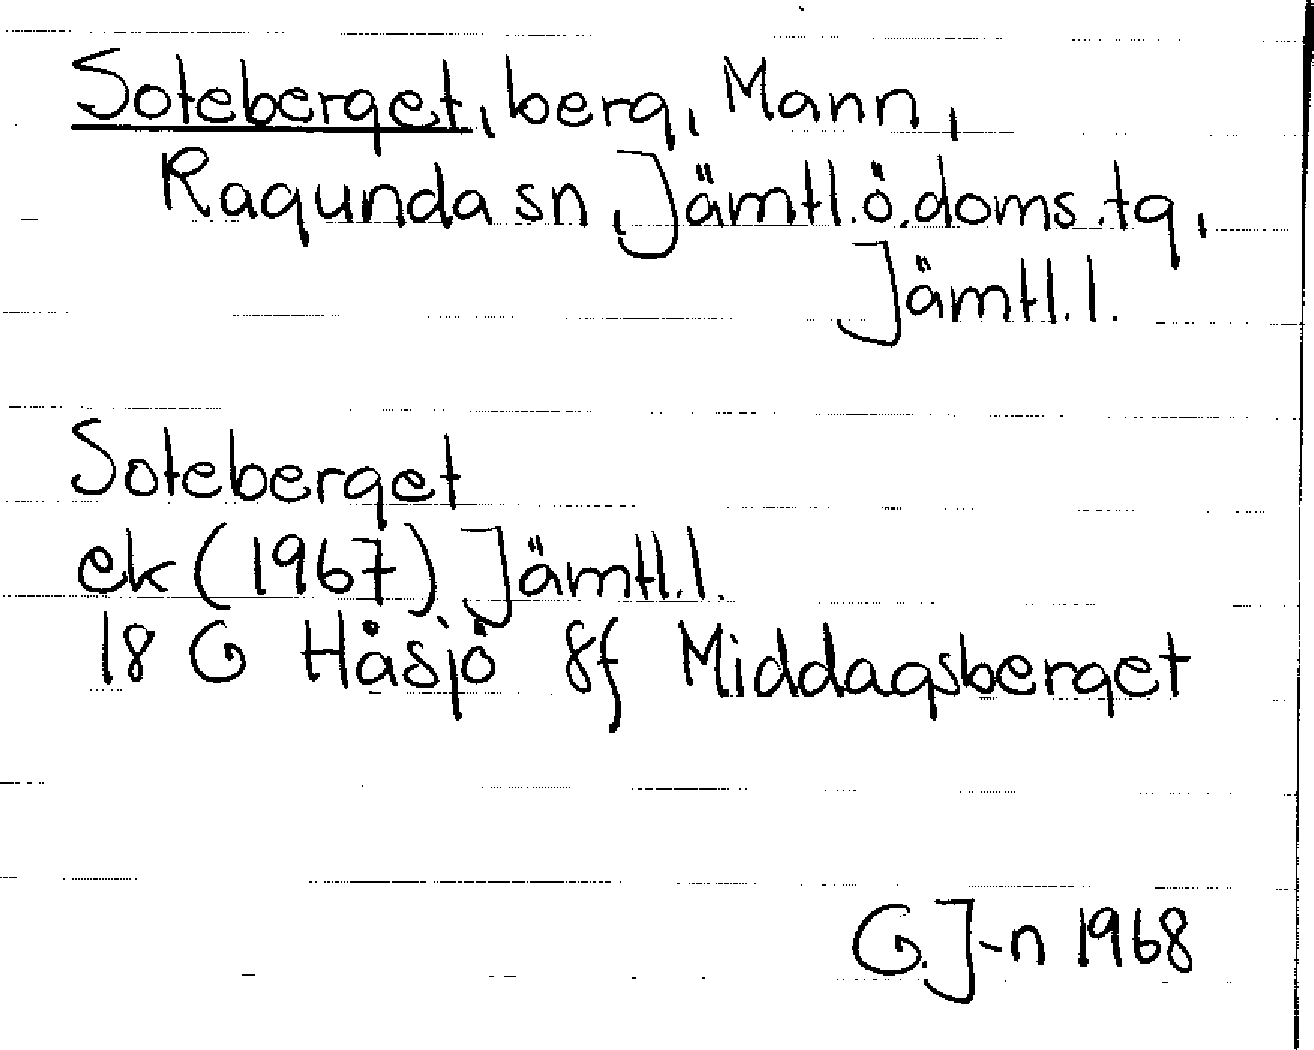 Soteberget, berg, Mann,
Ragunda sn, Jämtl.ö.doms.tg,
Jämtl.l.
Soteberget
ek (1967) Jämtl.l.
18 G Håsjö 8f Middagsberget
G.J-n 1968